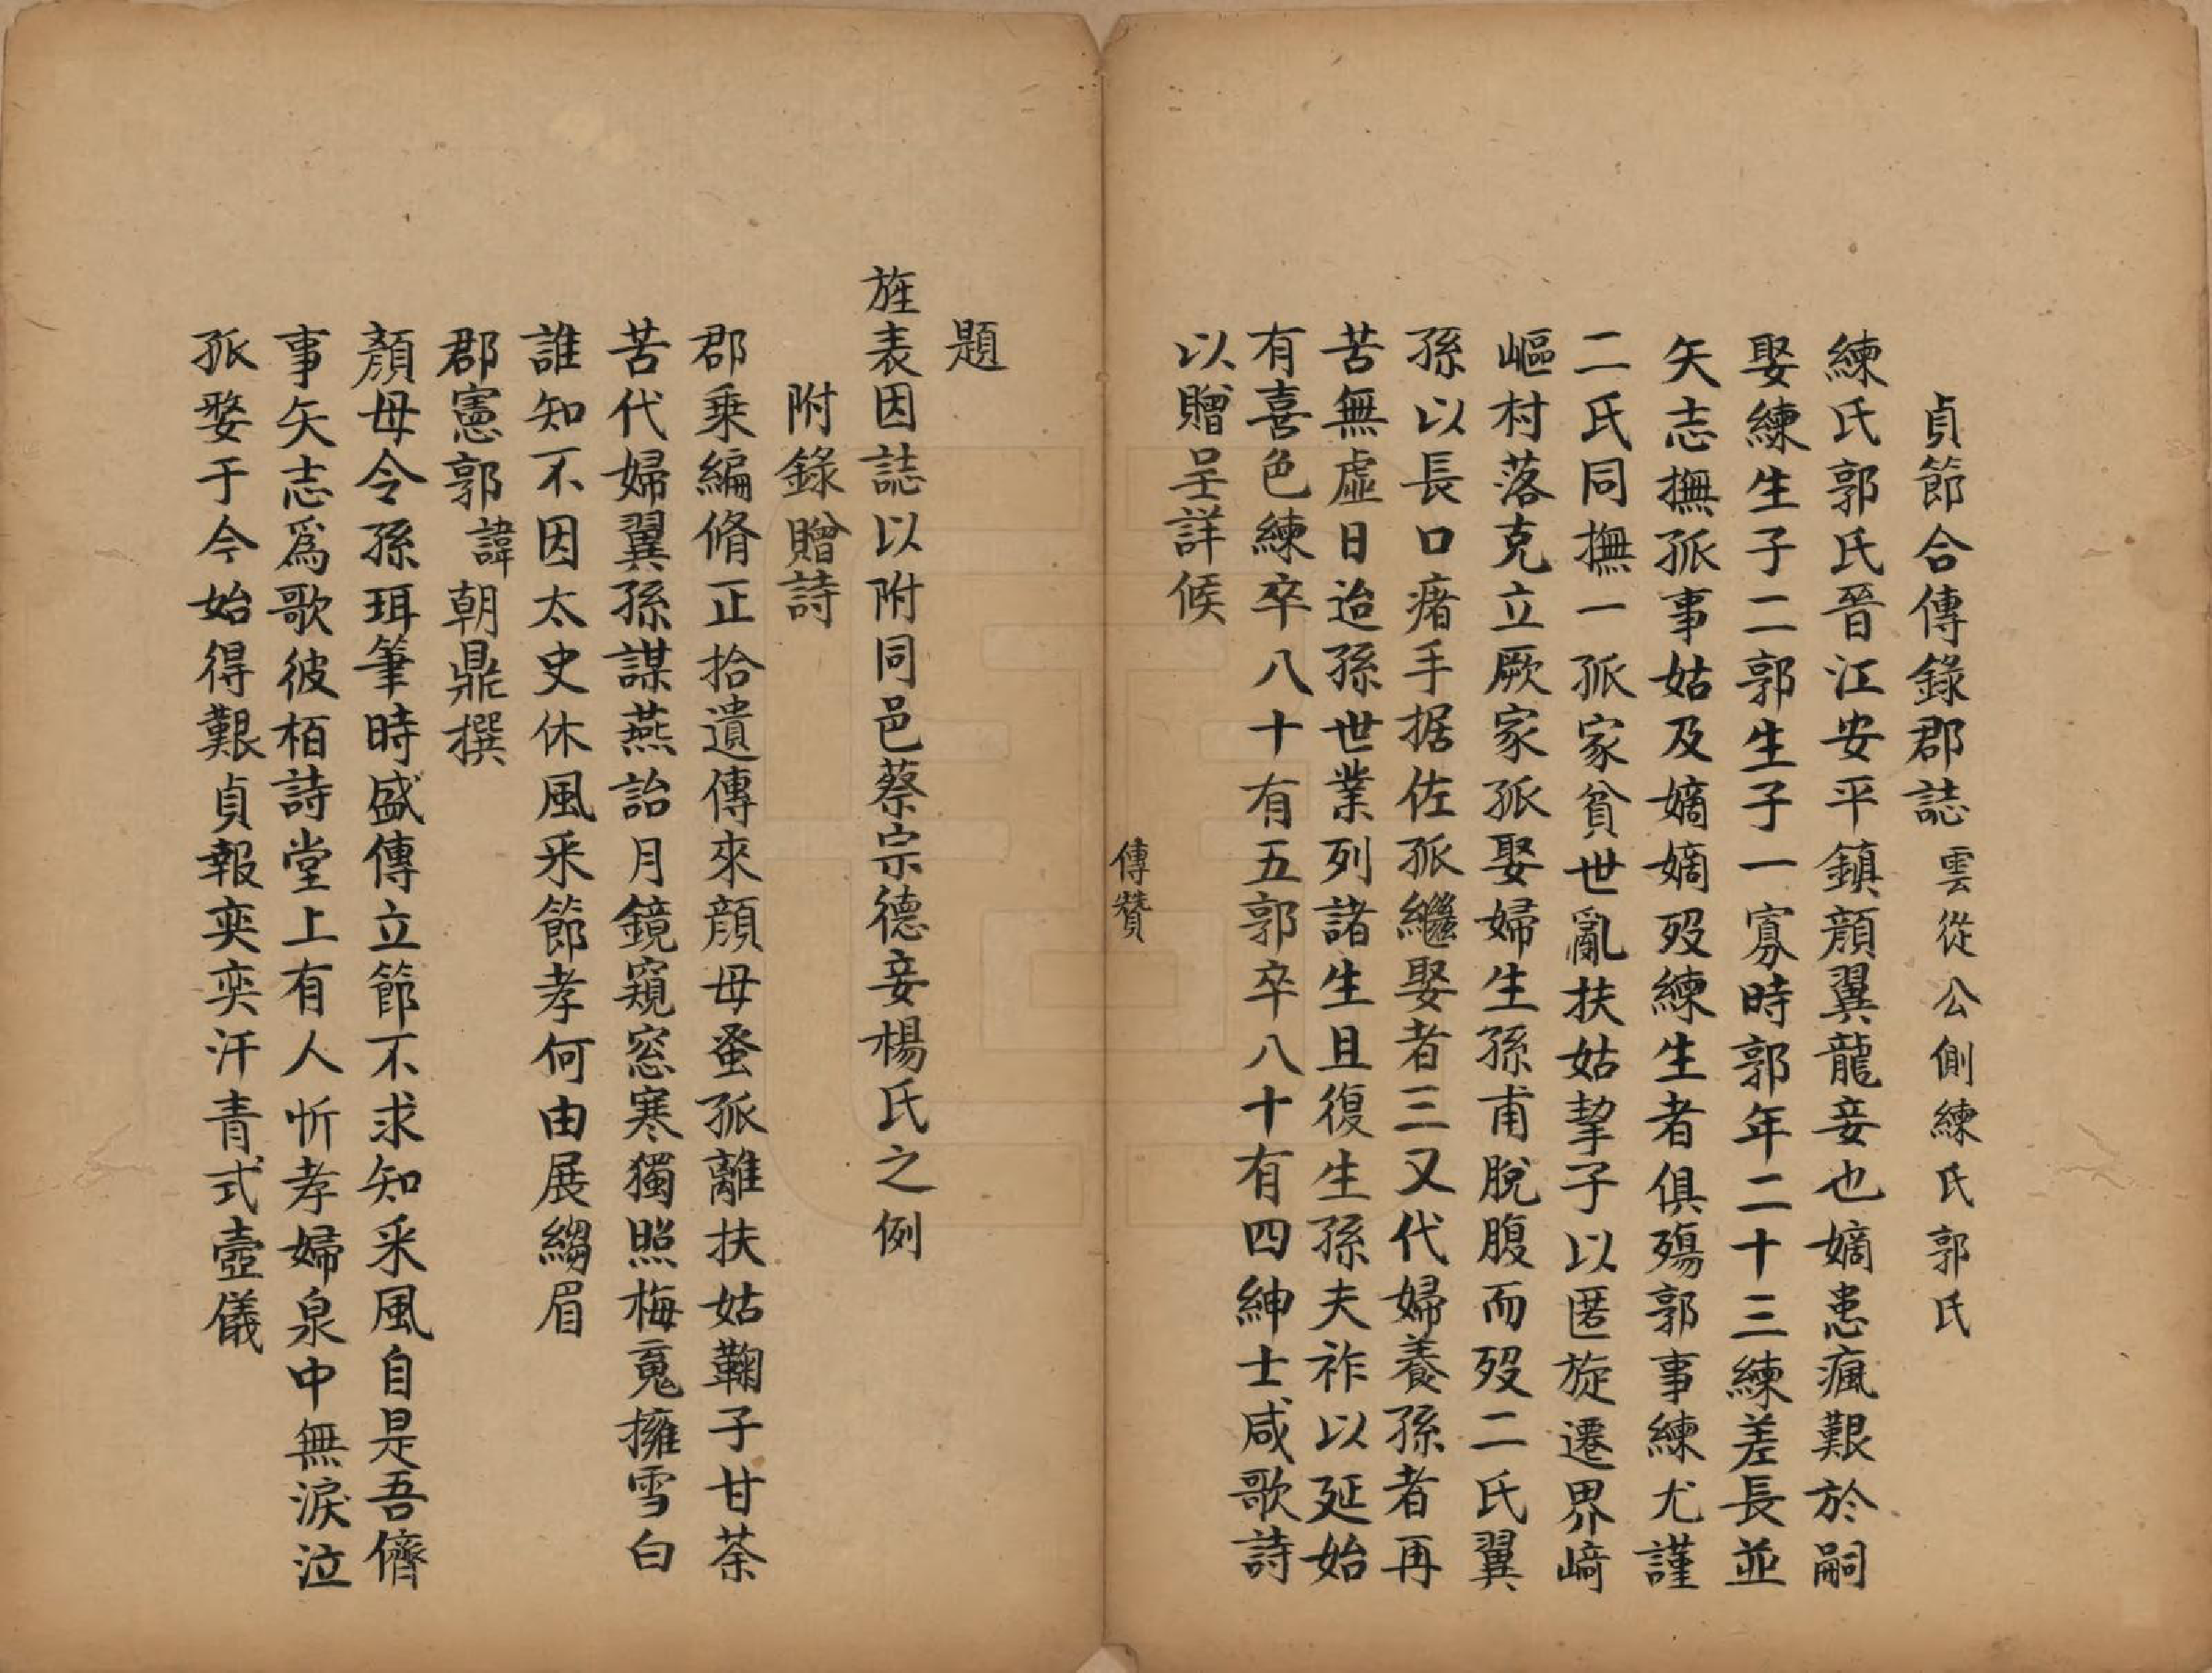 貞節合傳錄郡誌雲從公側練氏郭氏
練氏郭氏晉江安平鎮顏翼龍妾也嫡患瘋艱於嗣
娶練生子二郭生子一寡時郭年二十三練差長並
矢志撫孤事姑及嫡嫡歿練生者俱殤郭事練尤謹
二氏同撫一孤家貧世亂扶姑挈子以匿旋遷界崎
嶇村落克立厥家孤娶婦生孫甫脫腹而歿二氏翼
孫以長口瘏手据佐孤繼娶者三又代婦養孫者再
苦無虛日迨孫世業列諸生且復生孫夫祚以延始
有喜色練卒八十有五郭卒八十有四紳士咸歌詩
以贈呈詳候
傳贊
題
旌表因誌以附同邑蔡宗德妾楊氏之例
附錄贈詩
郡乘編脩正拾遺傳來顏母蚤孤離扶姑鞠子甘荼
苦代婦翼孫謀燕詒月鏡窺窓寒獨照梅䰟擁雪白
誰知不因太史休風采節孝何由展縐眉
郡憲郭諱朝鼎撰
顏母令孫珥筆時盛傳立節不求知采風自是吾儕
事矢志爲歌彼栢詩堂上有人忻孝婦泉中無淚泣
孤嫠于今始得艱貞報奕奕汗青式壼儀